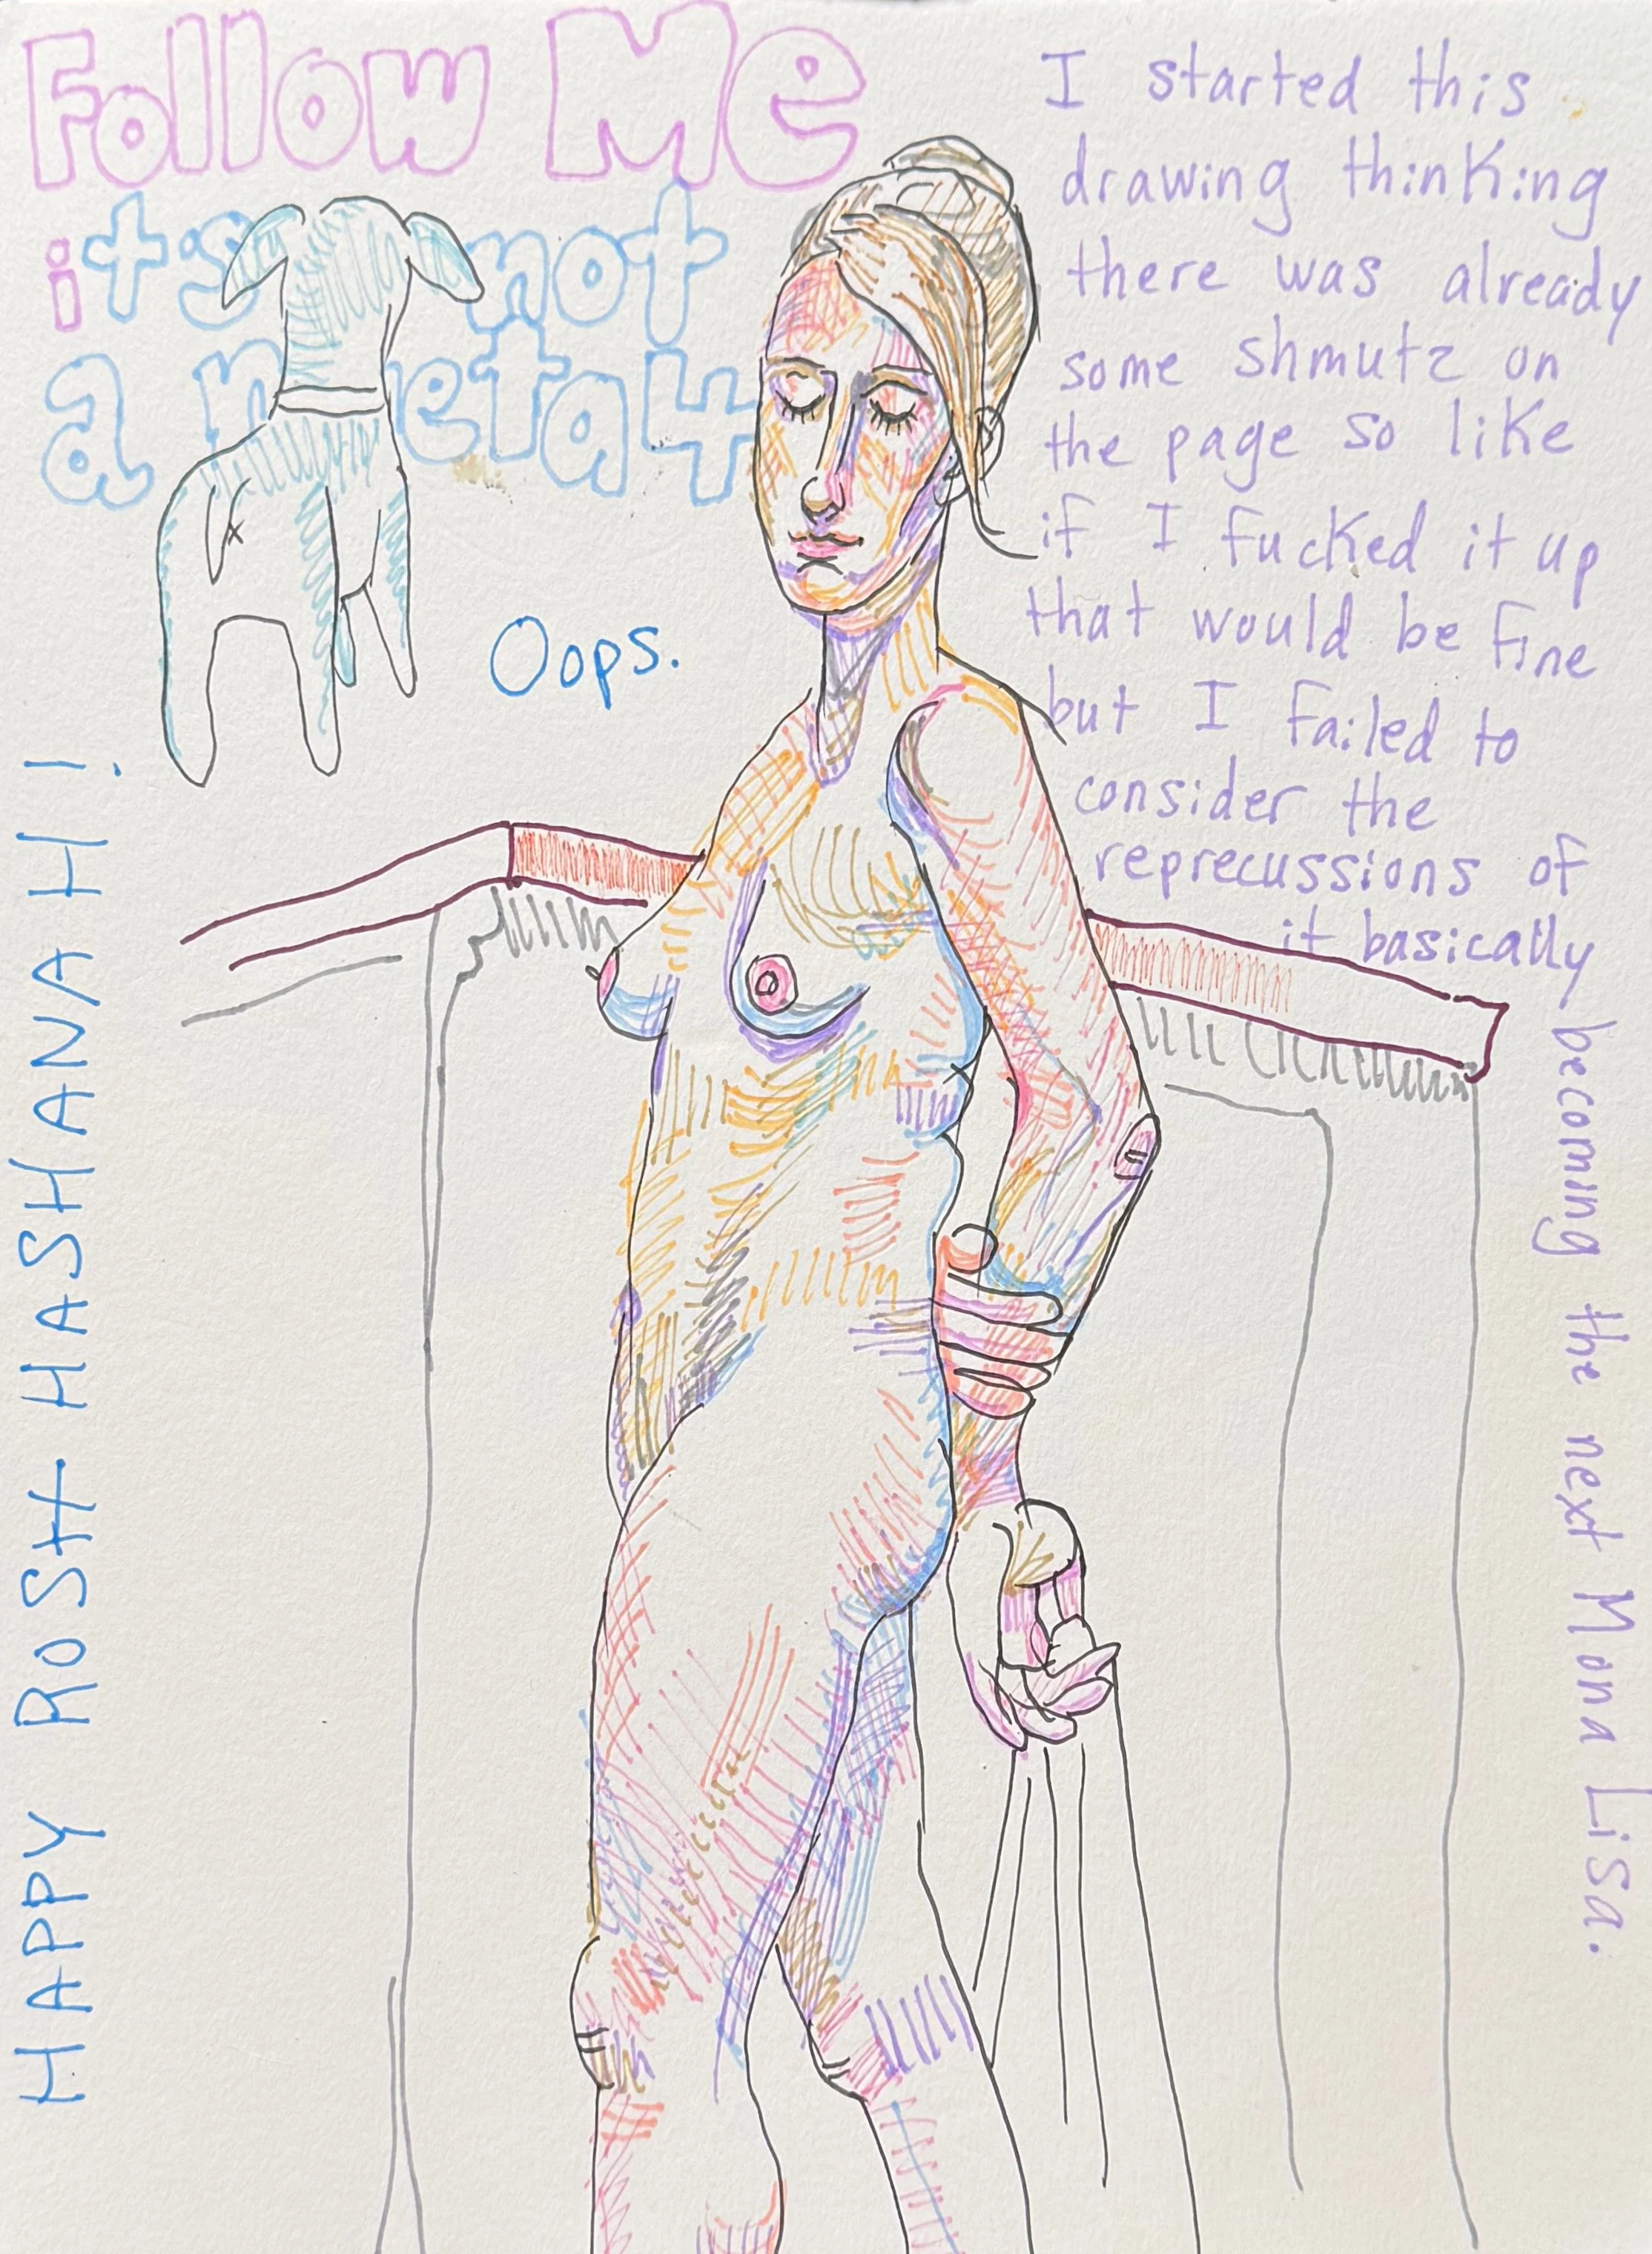 Follow Me
it's not
a meta4
Oops.
I started this
drawing thinking
there was already
some shmutz on
the page so like
if I fucked it up
that would be fine
but I failed to
consider the
reprecussions of
it basically
becoming the next Mona Lisa.
HAPPY ROSH HASHANAH!